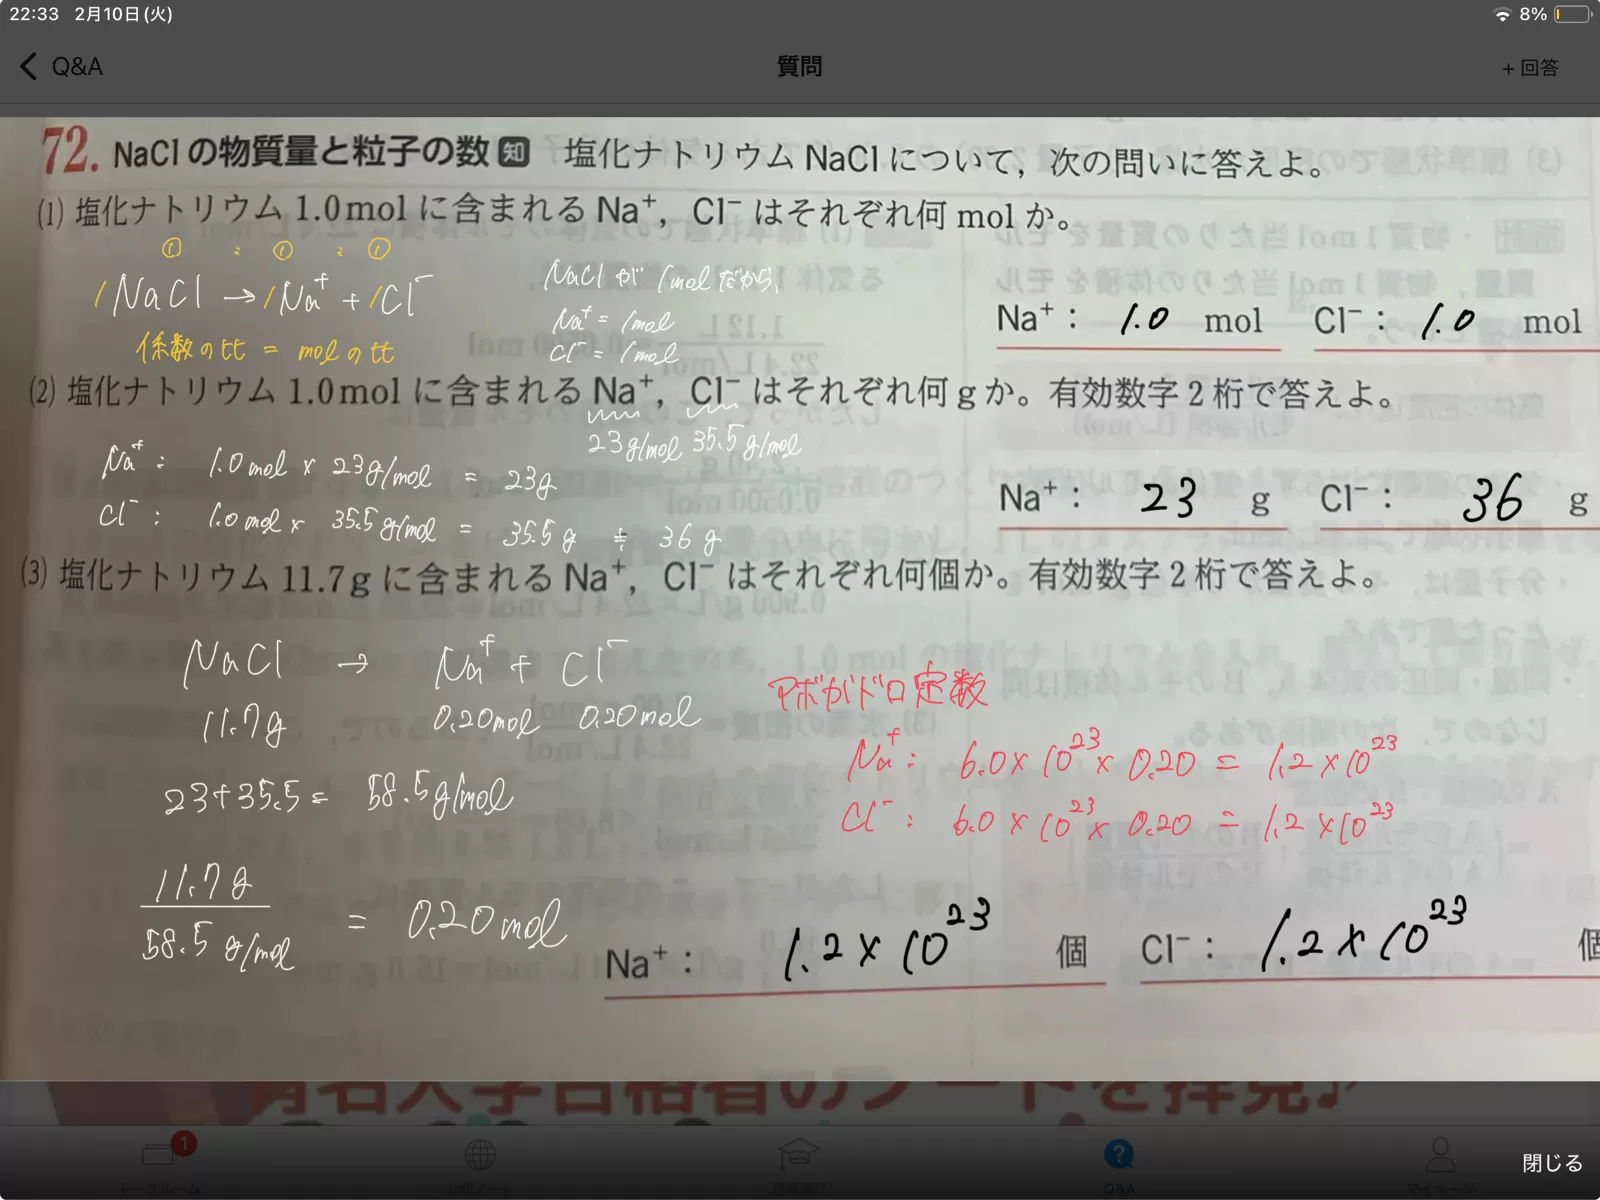 22:33 2月10日(火) 8%
Q&A 質問 + 回答
72. NaClの物質量と粒子の数 知 塩化ナトリウム NaCl について，次の問いに答えよ。
(1) 塩化ナトリウム 1.0 mol に含まれる Na⁺，Cl⁻ はそれぞれ何 mol か。
① : ① : ①
1NaCl → 1Na⁺ + 1Cl⁻
係数の比 = molの比
NaCl が 1molだから、
Na⁺ = 1mol
Cl⁻ = 1mol
Na⁺： 1.0 mol Cl⁻： 1.0 mol
(2) 塩化ナトリウム 1.0 mol に含まれる Na⁺，Cl⁻ はそれぞれ何 g か。有効数字 2 桁で答えよ。
23g/mol 35.5g/mol
Na⁺ : 1.0mol × 23g/mol = 23g
Cl⁻ : 1.0mol × 35.5g/mol = 35.5g ≒ 36g
Na⁺： 23 g Cl⁻： 36 g
(3) 塩化ナトリウム 11.7 g に含まれる Na⁺，Cl⁻ はそれぞれ何個か。有効数字 2 桁で答えよ。
NaCl → Na⁺ + Cl⁻
11.7g 0.20mol 0.20mol
23+35.5= 58.5g/mol
11.7g
58.5g/mol
= 0.20mol
アボガドロ定数
Na⁺ : 6.0×10²³×0.20 = 1.2×10²³
Cl⁻ : 6.0×10²³×0.20 = 1.2×10²³
Na⁺： 1.2×10²³ 個 Cl⁻： 1.2×10²³ 個
有名大学合格者のノートを拝見♪
1
Q&A
閉じる